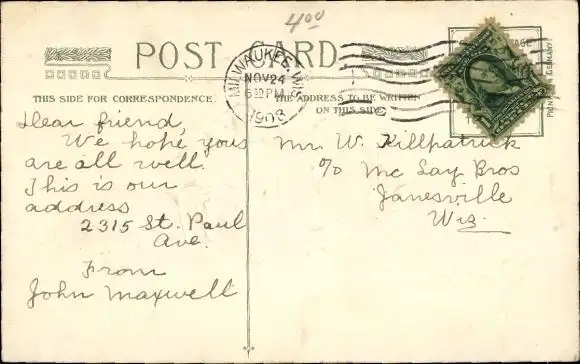 4 00
POST CARD
MILWAUKEE, WIS.
NOV 24
6 30 PM
1908
THIS SIDE FOR CORRESPONDENCE.
THE ADDRESS TO BE WRITTEN
ON THIS SIDE
Dear friend,
We hope yous
are all well.
This is our
address
2315 St. Paul
Ave.
From
John Maxwell
Mr. W. Killpatrick
c/o Mc Lay Bros
Janesville
Wis.